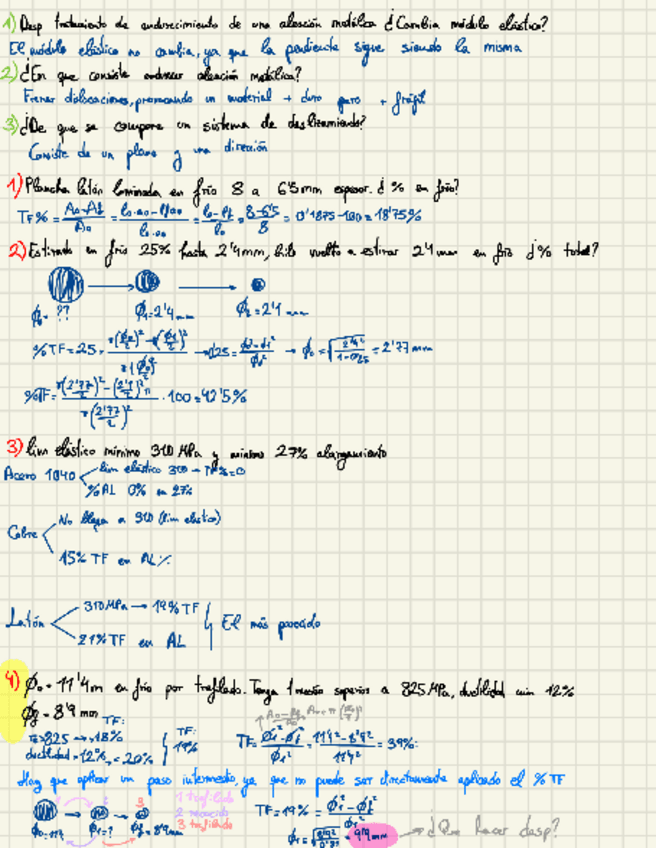 1) Desp tratamiento de endurecimiento de una aleación metálica ¿Cambia módulo elástico?
El módulo elástico no cambia, ya que la pendiente sigue siendo la misma
2) ¿En que consiste endurecer aleación metálica?
Frenar dislocaciones, provocando un material + duro pero + frágil
3) ¿De que se compone un sistema de deslizamiento?
Consiste de un plano y una dirección
1) Plancha latón laminada en frío 8 a 6'5mm espesor. ¿% en frío?
TF% = = 8-6'5 / 8 = 0'1875·100 = 18'75%
2) Estirado en frío 25% hasta 2'4mm, hilo vuelto a estirar 2'1 mm en frío ¿% total?
ϕ₀ = ?? ϕ₁=2'4mm ϕ₂=2'1mm
%TF=25= → 0'25= → ϕ₀ = = 2'77 mm
%TF= ·100=42'5%
3) lim elástico mínimo 310 MPa y mínimo 27% alargamiento
Acero 1040 lim elástico 310 → TF%=0
%AL 0% 27%
Cobre No llega a 310 (lim elastico)
15% TF en AL%
Latón 310MPa → 19% TF
21% TF en AL
El más parecido
4) ϕ₀ = 11'4m en frío por trefilado. Tenga superior a 825 MPa, ductilidad min 12%
ϕf = 8'9 mm
TF:
825 → 18%
ductilidad = 12%, = 20%
TF: 19%
TF= = = 39%
Hay que aplicar un paso intermedio, ya que no puede ser directamente aplicado el % TF
1 trefilado
2 recocido
3 trefilado
ϕ₁=? ϕf=8'9mm
TF=19% =
ϕ₁ = = 9'9mm → ¿Que hacer desp?